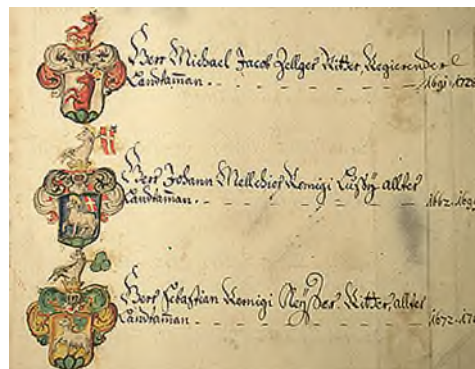 Herr Michael Jacob Zellger Ritter, Regierender
Landtam̄an. - - - - - - - - - 1691-1728
Herr Johann Mellchior Remigi Lussy allter
Landtam̄an. - - - - - - - - - 1662-169
Herr Sebastian Remigi Keyser Ritter, allter
Landtam̄an. - - - - - - - - - 1672-17